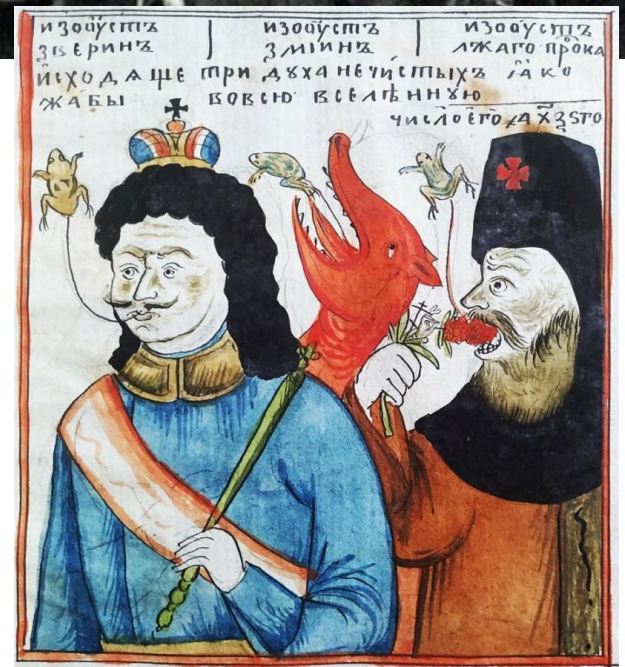 изоо́устъ звѐринъ
изоо́устъ змі́инъ
изоо́устъ лжаго про́ка
и́сходѧще три дꙋха нечи́стыхъ ꙗ҆́ко
жабы во всю вселѣ́ннꙋю
число̀ е҆го̀ ҂а х҃ѯѕ то